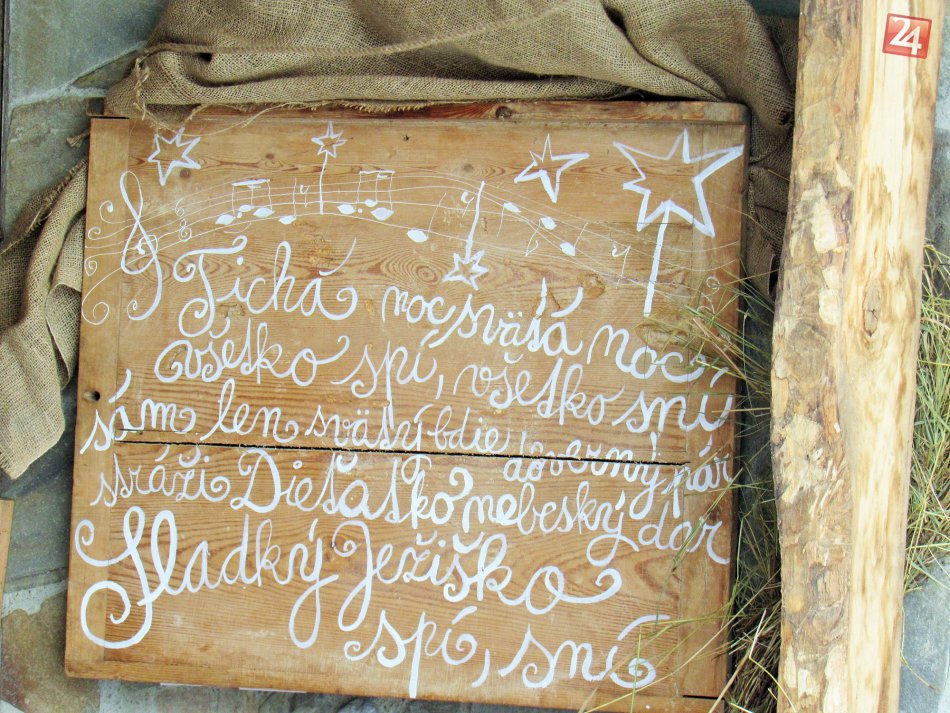 24
Tichá noc svätá noc,
všetko spí, všetko sní
sám len svätý bdie doverný pár
stráži Dieťaťko nebeský dar
Sladký Ježiško
spí, sní